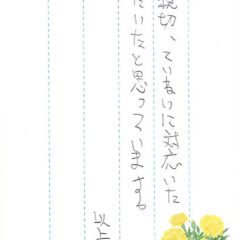 親切、ていねいに対応いた
だいたと思っています。
以上